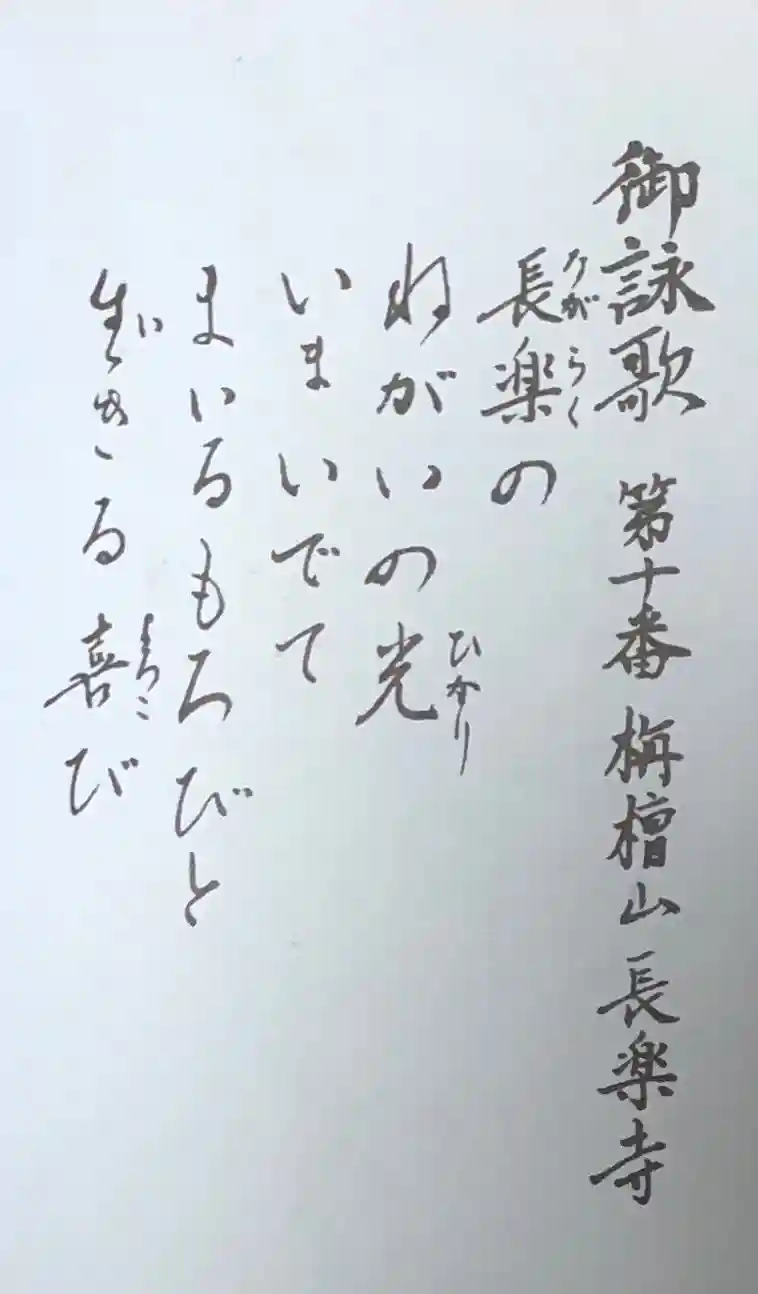 御詠歌 第十番 栴檀山長楽寺
ながらく
長楽の
ひかり
ねがいの光
いまいでて
まいるもろびと
い よろこ
生きる喜び